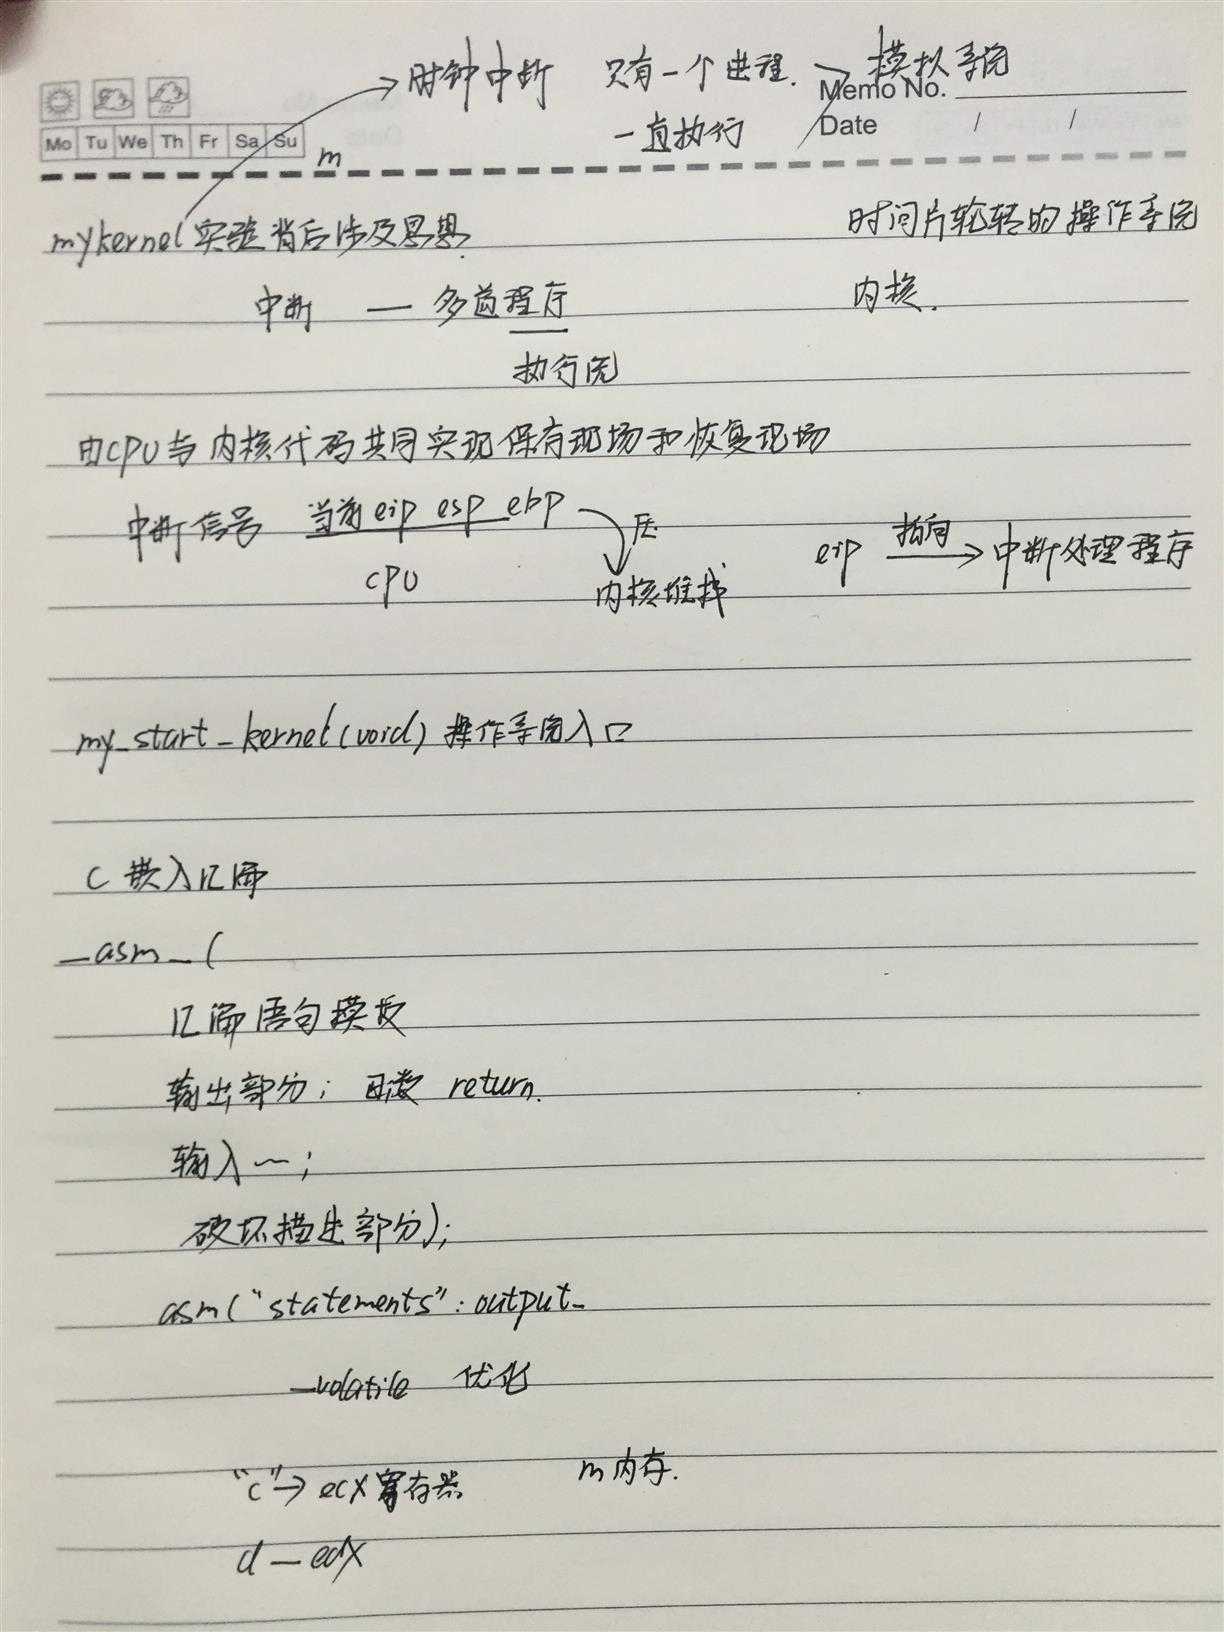 时钟中断 只有一个进程. 模拟系统
Memo No.
一直执行 Date / /
Mo Tu We Th Fr Sa Su
m
mykernel 实验背后涉及思想.
时间片轮转的操作系统
中断 — 多道程序
内核.
执行流
由CPU与内核代码共同实现保存现场和恢复现场
中断信号 当前 eip esp ebp 压
eip 指向 中断处理程序
CPU 内核堆栈
my_start_kernel(void) 操作系统入口
C 嵌入汇编
_asm_(
汇编语句模板
输出部分; 函数 return.
输入~;
破坏描述部分);
asm("statements": output_
_volatile 优化
"c"→ ecx 寄存器 m 内存.
d — edx